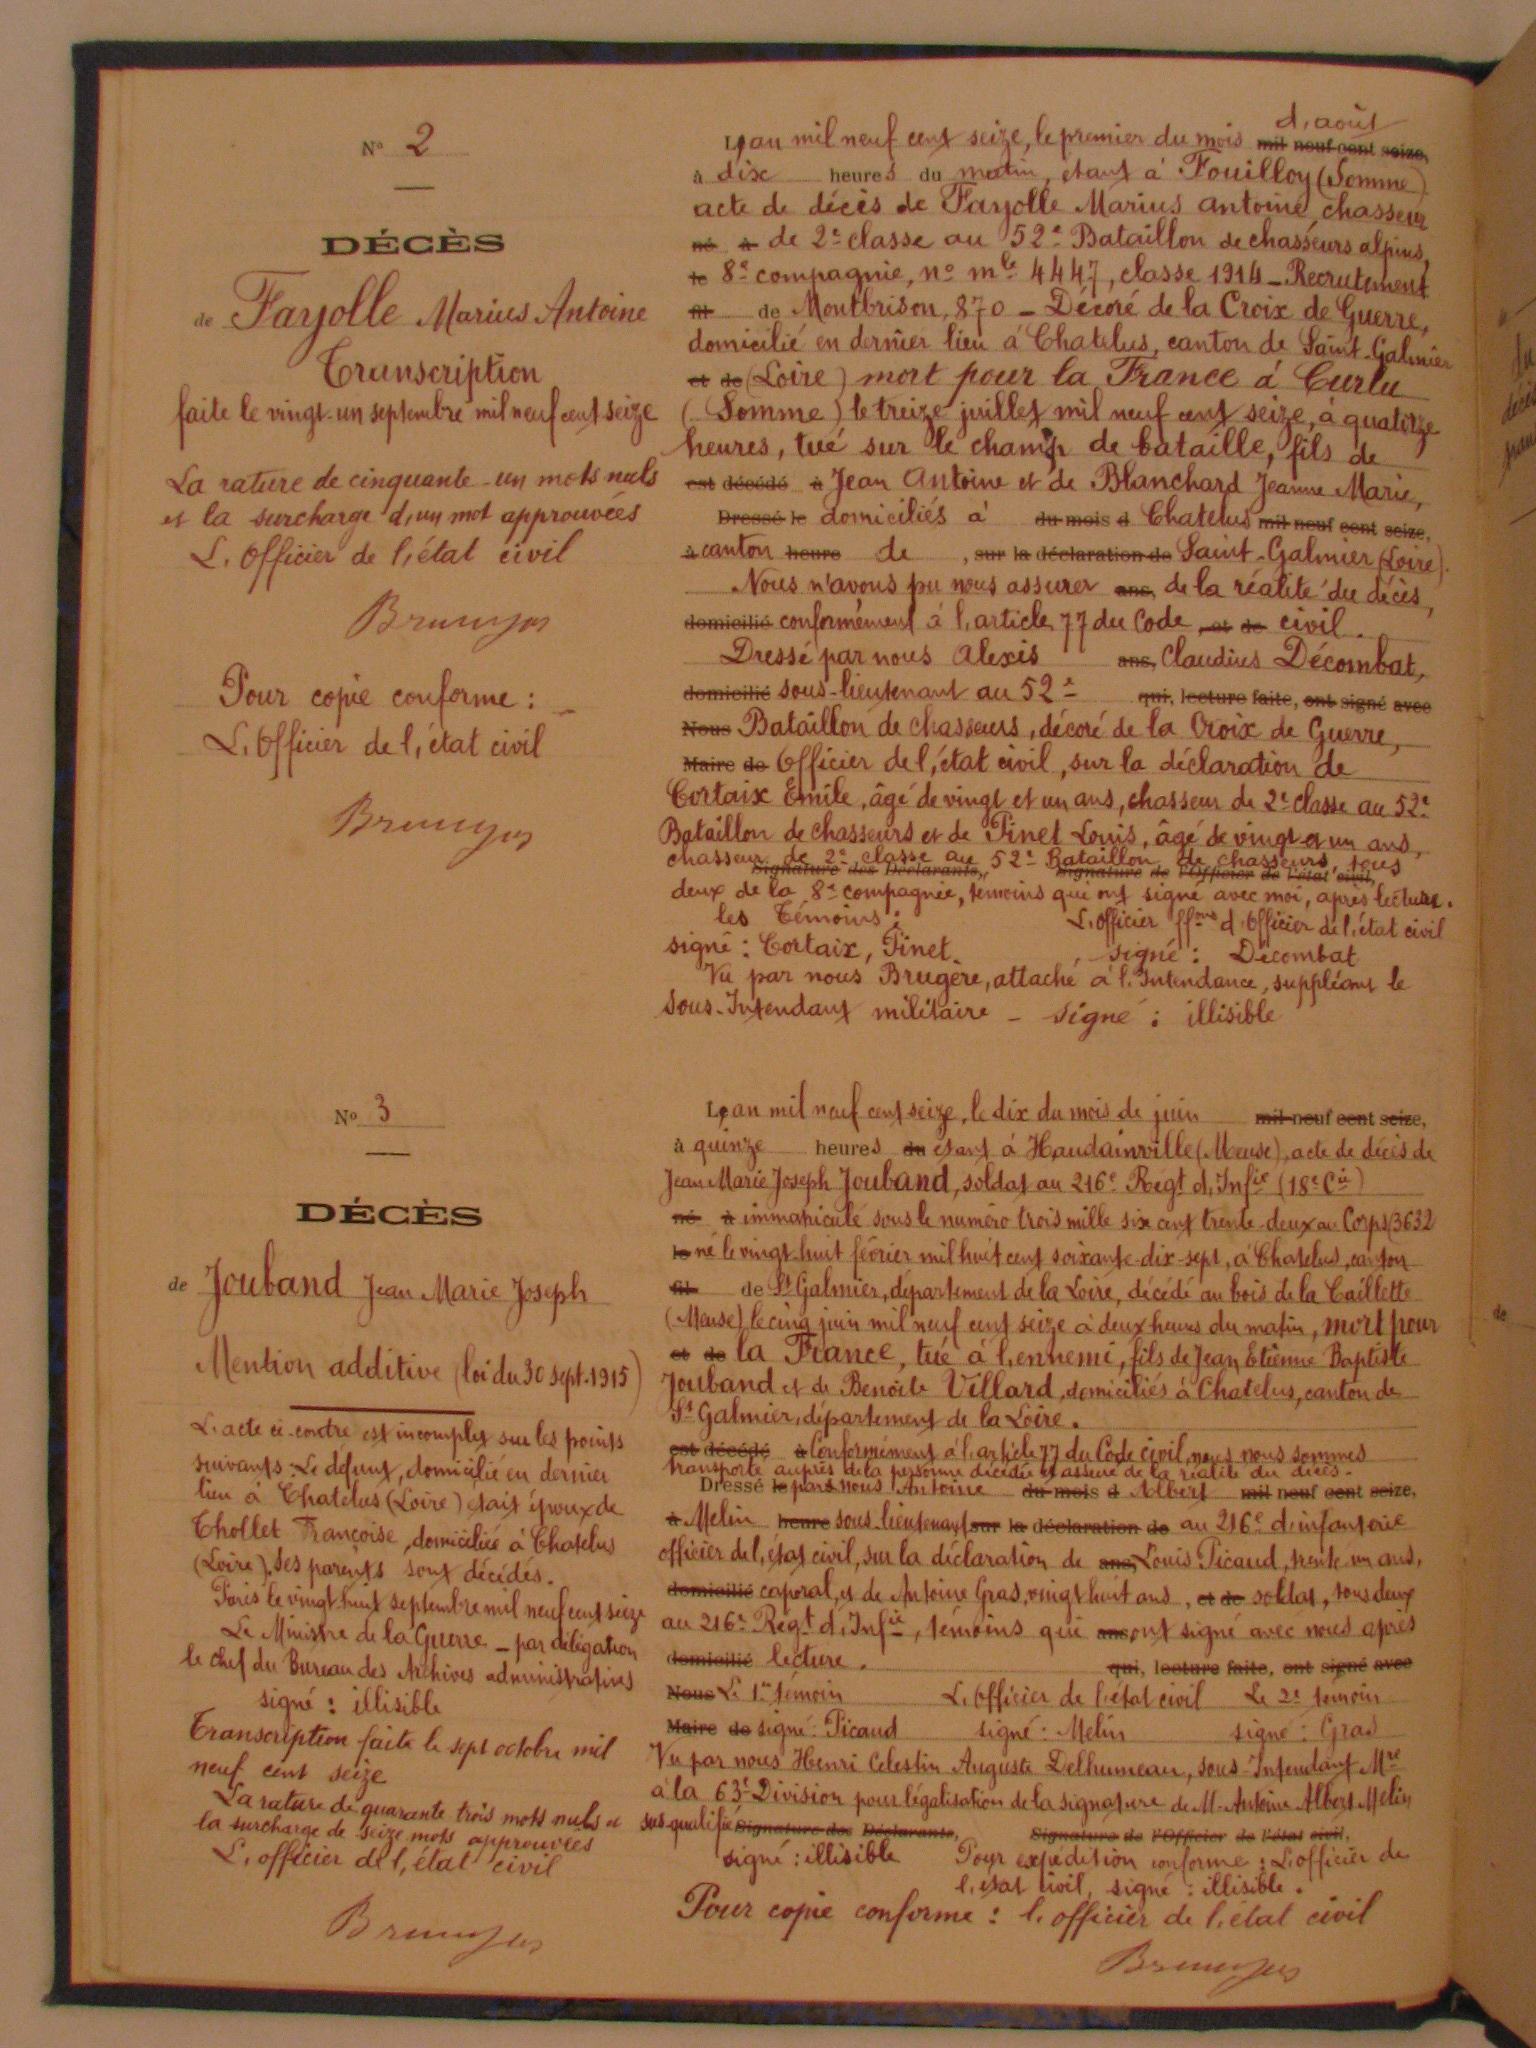 N° 2
DÉCÈS
de Fayolle Marius Antoine
Transcription
faite le vingt-un septembre mil neuf cent seize
La rature de cinquante-un mots nuls
et la surcharge d'un mot approuvées
L'Officier de l'état civil
Pour copie conforme :
L'Officier de l'état civil
d'août
L'an mil neuf cent seize, le premier du mois mil neuf cent seize,
à dix heures du matin, étant à Fouilloy (Somme)
acte de décès de Fayolle Marius Antoine chasseur
né à de 2e classe au 52e Bataillon de chasseurs alpins,
le 8e compagnie, n° mle 4447, classe 1914 - Recrutement
fil de Montbrison, 870 - Décoré de la Croix de Guerre,
domicilié en dernier lieu à Chatelus, canton de Saint-Galmier
et de (Loire) mort pour la France à Curlu
(Somme) le treize juillet mil neuf cent seize, à quatorze
heures, tué sur le champ de bataille, fils de
est décédé à Jean Antoine et de Blanchard Jeanne Marie,
Dressé le domiciliés à du mois d Chatelus mil neuf cent seize,
à canton heure de , sur la déclaration de Saint-Galmier (Loire).
Nous n'avons pu nous assurer ans, de la réalité du décès,
domicilié conformément à l'article 77 du Code , et de civil.
Dressé par nous Alexis ans, Claudius Décombat,
domicilié sous-lieutenant au 52e qui, lecture faite, ont signé avec
Nous Bataillon de chasseurs, décoré de la Croix de Guerre,
Maire de Officier de l'état civil, sur la déclaration de
Cortaix Emile, âgé de vingt et un ans, chasseur de 2e classe au 52e
Bataillon de chasseurs et de Pinet Louis, âgé de vingt et un ans,
chasseur de 2e classe au 52e Bataillon de chasseurs, tous
Signature des Déclarants, Signature de l'Officier de l'état civil,
deux de la 8e compagnie, témoins qui ont signé avec moi, après lecture.
les Témoins : L'officier ffons d'Officier de l'état civil
signé : Cortaix, Pinet. signé : Décombat
Vu par nous Brugère, attaché à l'Intendance, suppléant le
Sous-Intendant militaire - signé : illisible
N° 3
DÉCÈS
de Jouband Jean Marie Joseph
Mention additive (loi du 30 sept. 1915)
L'acte ci-contre est incomplet sur les points
suivants : Le défunt, domicilié en dernier
lieu à Chatelus (Loire) était époux de
Thollet Françoise, domiciliée à Chatelus
(Loire). Ses parents sont décédés.
Paris le vingt-huit septembre mil neuf cent seize
Le Ministre de la Guerre - par délégation
le chef du Bureau des Archives administratives
signé : illisible
Transcription faite le sept octobre mil
neuf cent seize
La rature de quarante trois mots nuls et
la surcharge de seize mots approuvées
L'officier de l'état civil
L'an mil neuf cent seize, le dix du mois de juin mil neuf cent seize,
à quinze heures du étant à Haudainville (Meuse), acte de décès de
Jean Marie Joseph Jouband, soldat au 216e Régt d'Infie (18e Cie)
né à immatriculé sous le numéro trois mille six cent trente-deux au Corps (3632
le né le vingt-huit février mil huit cent soixante-dix-sept, à Chatelus, canton
fil de St Galmier, département de la Loire, décédé au bois de la Caillette
(Meuse) le cinq juin mil neuf cent seize à deux heures du matin, mort pour
et de la France, tué à l'ennemi, fils de Jean Etienne Baptiste
Jouband et de Benoîte Villard, domiciliés à Chatelus, canton de
St Galmier, département de la Loire.
est décédé à Conformément à l'article 77 du Code civil, nous nous sommes
transporté auprès de la personne décédée et assuré de la réalité du décès.
Dressé le par nous Antoine du mois d Albert mil neuf cent seize,
à Melin heure sous-lieutenant sur la déclaration de au 216e d'infanterie
officier de l'état civil, sur la déclaration de ans, Louis Picaud, trente un ans,
domicilié caporal, et de Antoine Gras, vingt huit ans, et de soldat, tous deux
au 216e Régt d'Infie, témoins qui ans, ont signé avec nous après
domicilié lecture. qui, lecture faite, ont signé avec
Nous Le 1er témoin L'Officier de l'état civil Le 2e témoin
Maire de signé : Picaud signé : Melin signé : Gras
Vu par nous Henri Celestin Auguste Delhumeau, sous-Intendant Mre
à la 63e Division pour légalisation de la signature de M. Antoine Albert Melin
sus-qualifié Signature des Déclarants, Signature de l'Officier de l'état civil,
signé : illisible Pour expédition conforme : L'officier de
l'état civil, signé : illisible.
Pour copie conforme : l'officier de l'état civil